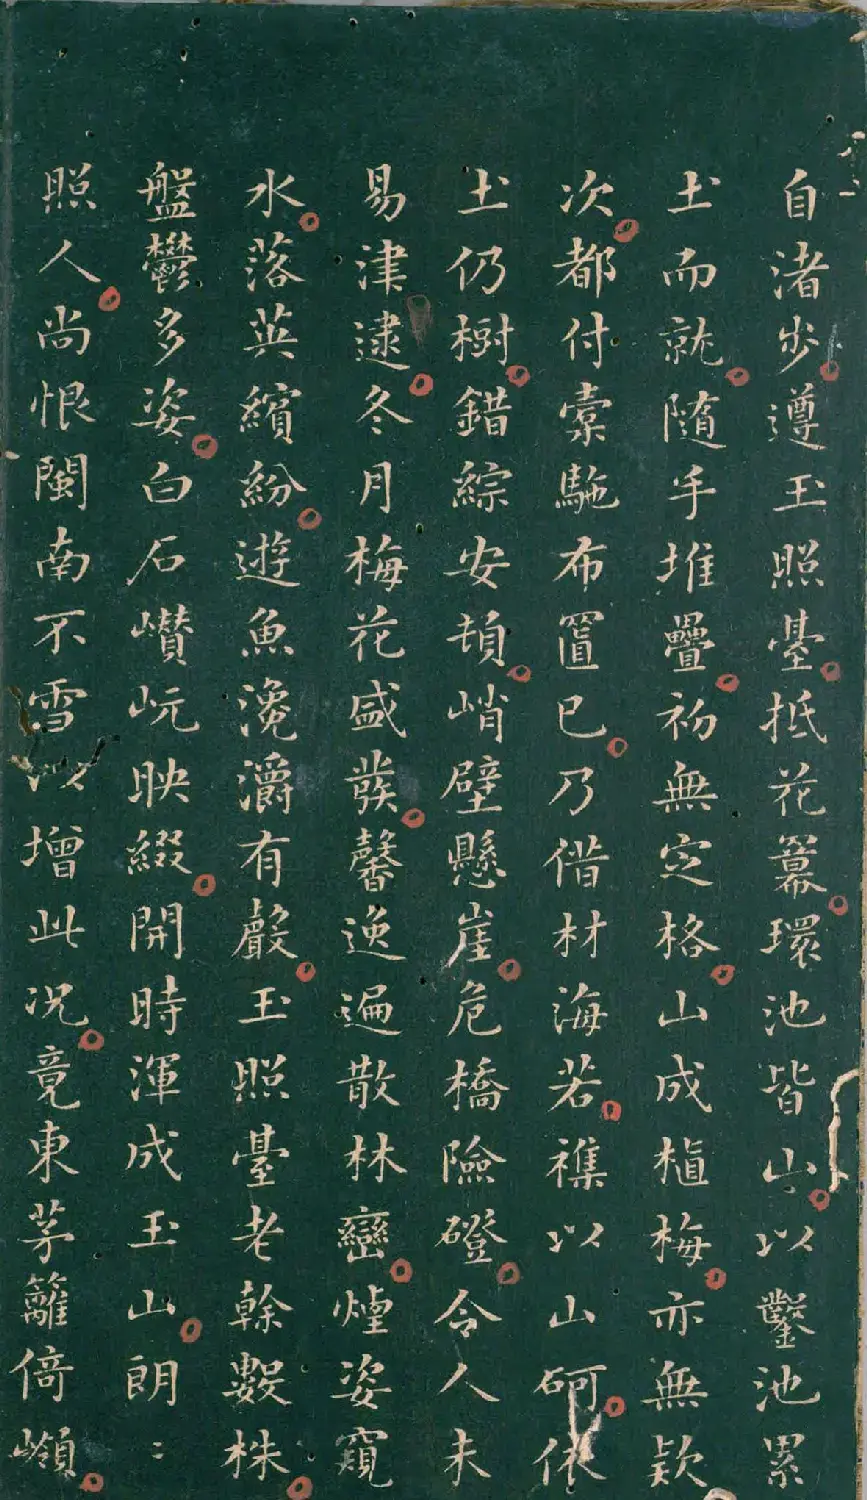 自渚步遵玉照臺抵花冪環池皆山以鑿池累
土而就隨手堆疊初無定格山成植梅亦無欵
次都付橐駞布置已乃借材海若襍以山砢依
土仍樹錯綜安頓峭壁懸崖危橋險磴令人未
易津逮冬月梅花盛發馨逸遍散林巒煙姿窺
水落英繽紛遊魚瀺灂有聲玉照臺老榦數株
盤鬱多姿白石巑岏映綴開時渾成玉山朗〻
照人尚恨閩南不雪以增此況竟東茅籬倚嶺